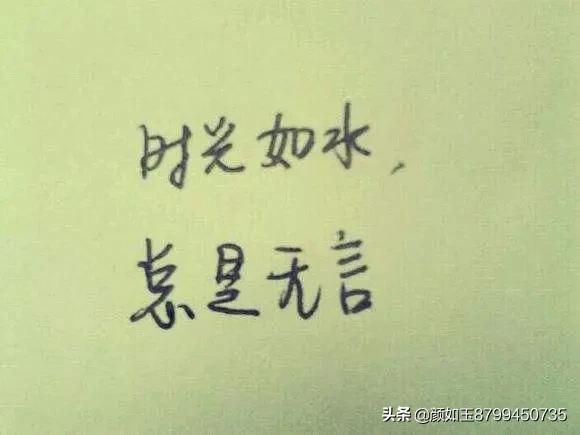 时光如水，
总是无言
头条 @颜如玉8799450735